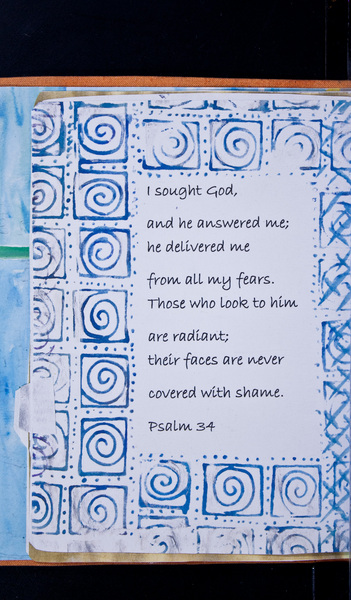 I sought God,
and he answered me;
he delivered me
from all my fears.
Those who look to him
are radiant;
their faces are never
covered with shame.
Psalm 34